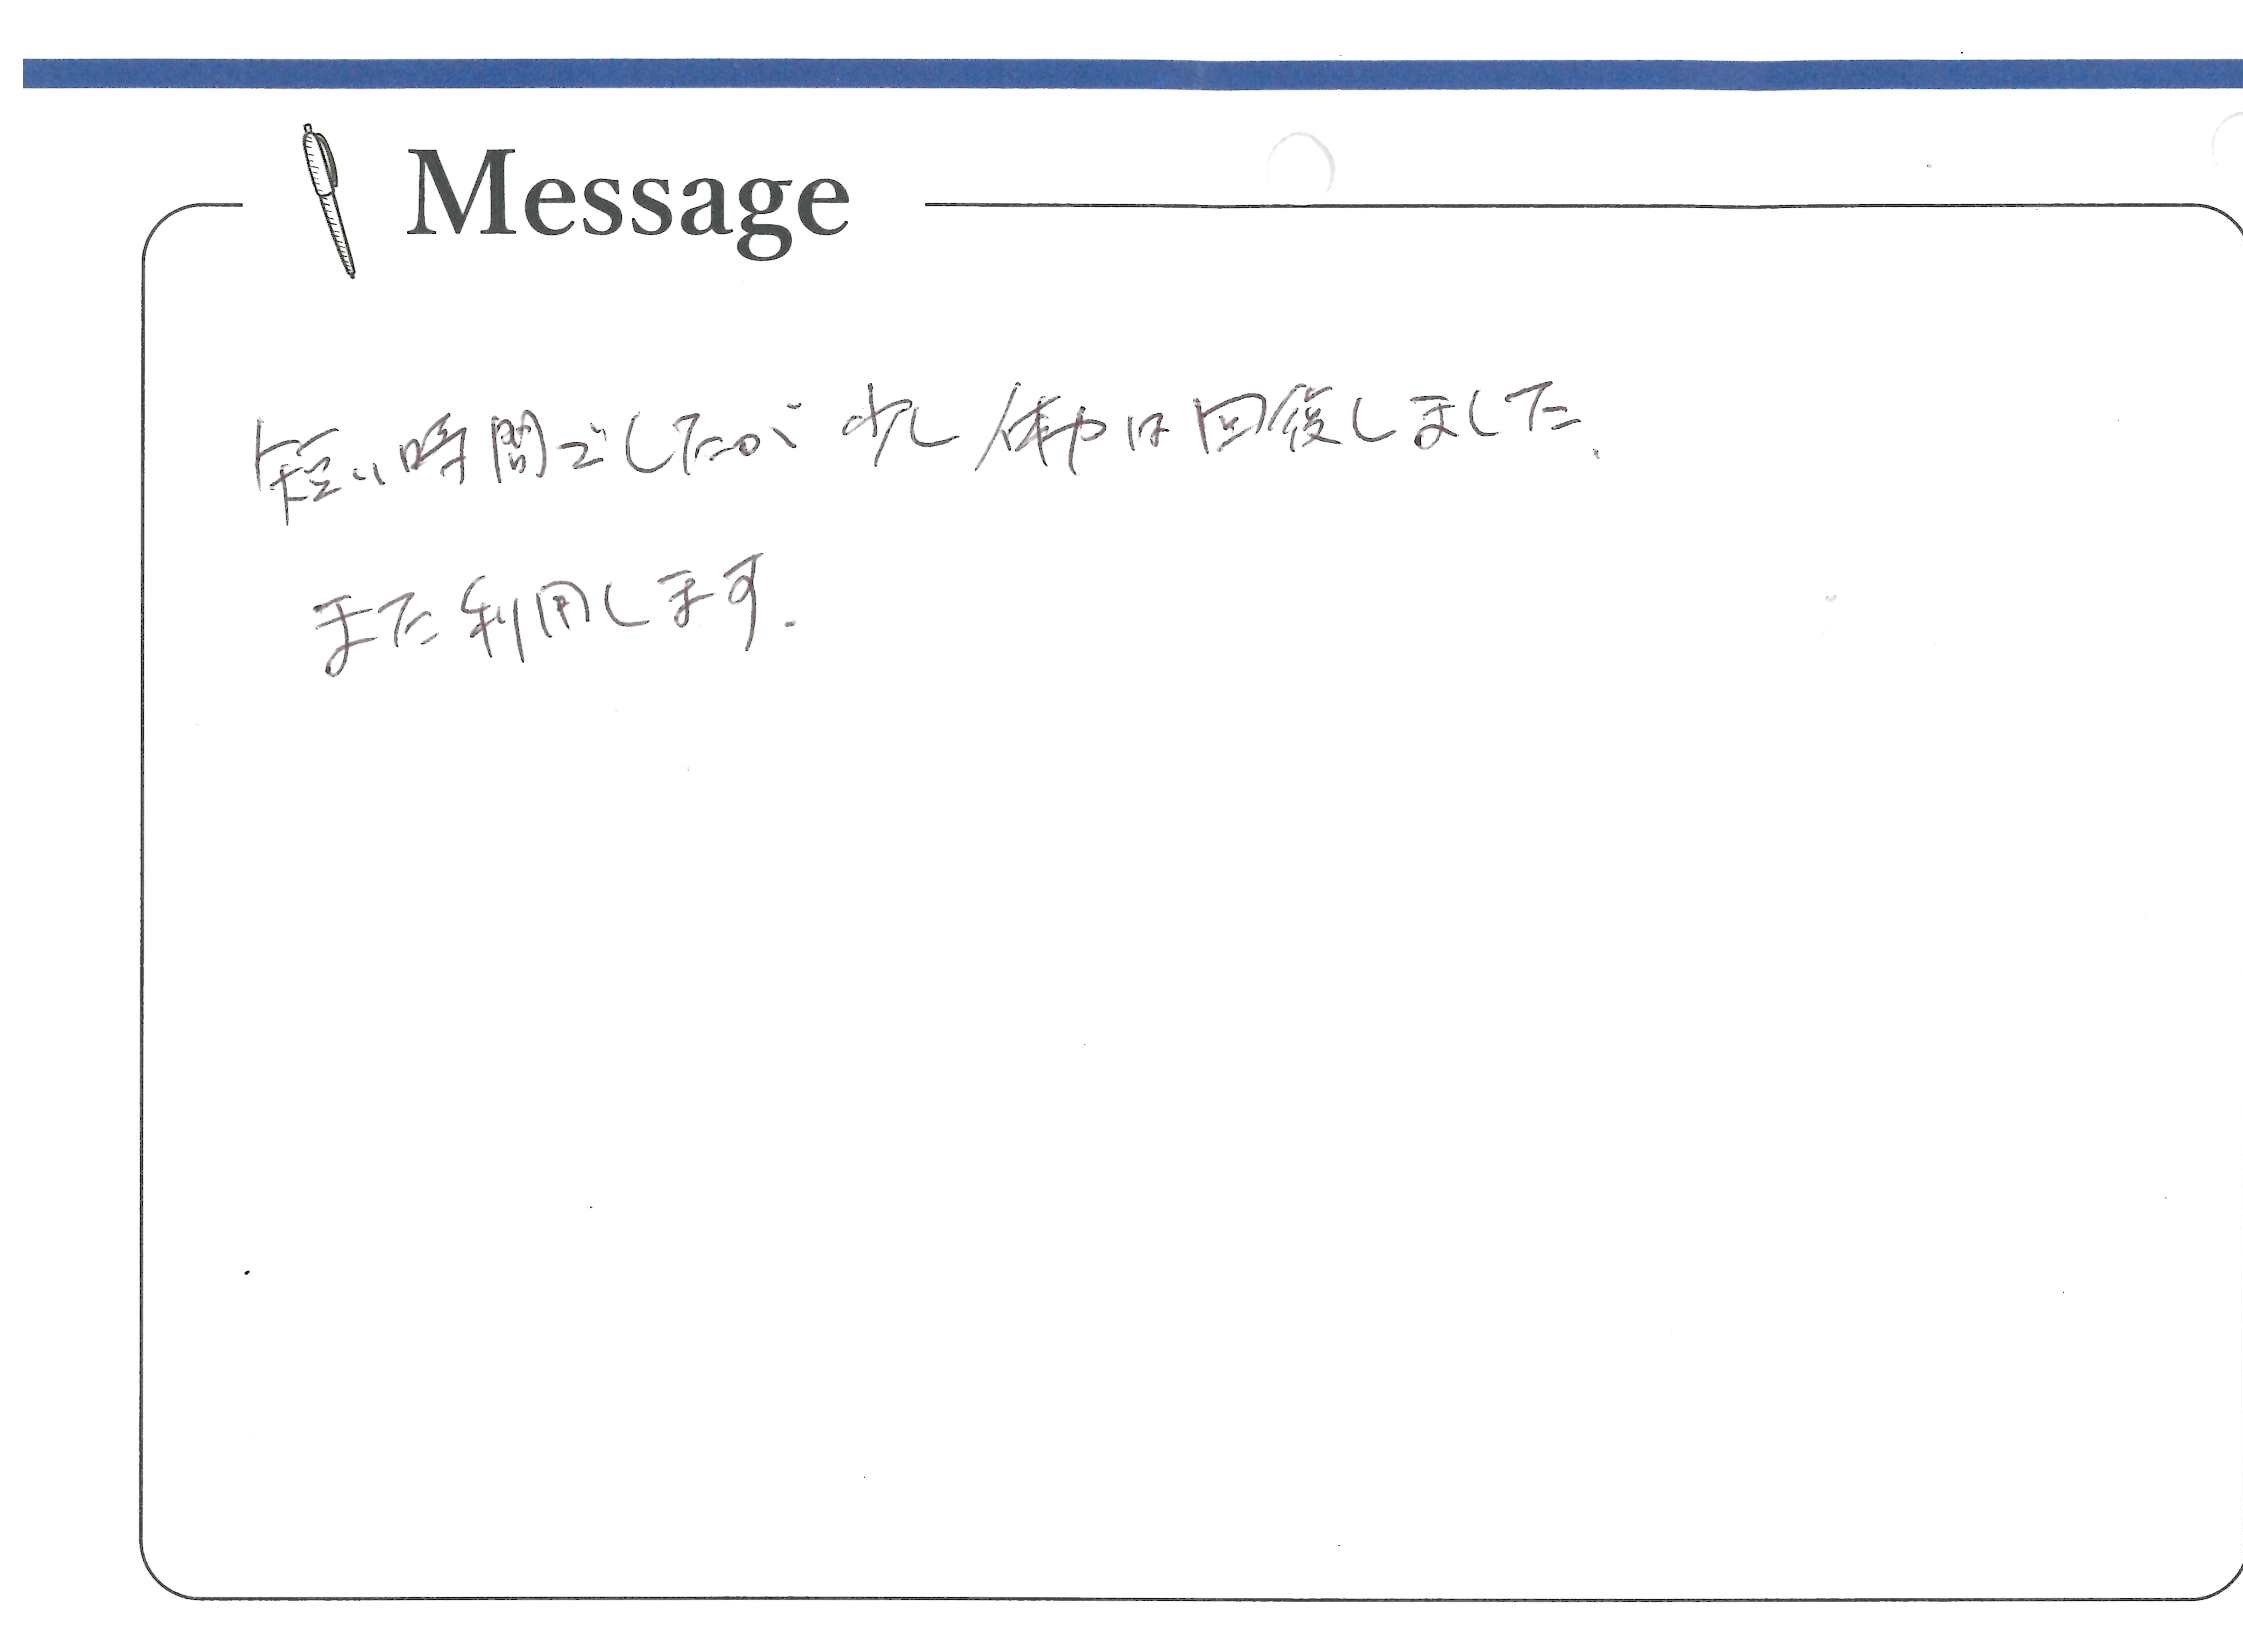 Message
短い時間でしたが 少し 体力は回復しました.
また利用します.